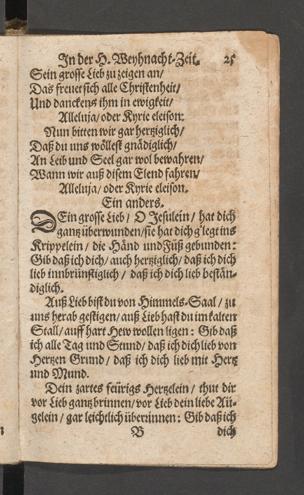 In der H. Weyhnacht-Zeit. 25
Sein grosse Lieb zu zeigen an/
Das frewet sich alle Christenheit/
Und danckens ihm in ewigkeit/
Alleluja/ oder Kyrie eleison.
Nun bitten wir gar hertziglich/
Daß du uns wöllest gnädiglich/
An Leib und Seel gar wol bewahren/
Wann wir auß disem Elend fahren/
Alleluja/ oder Kyrie eleison.
Ein anders.
DEin grosse Lieb/ O Jesulein/ hat dich
gantz überwunden/ sie hat dich g'legt ins
Krippelein/ die Händ und Füß gebunden:
Gib daß ich dich/ auch hertziglich/ daß ich dich
lieb innbrünstiglich/ daß ich dich lieb bestän-
diglich.
Auß Lieb bist du von Himmels-Saal/ zu
uns herab gestigen/ auß Lieb hast du im kalten
Stall/ auff hart Hew wollen ligen: Gib daß
ich alle Tag und Stund/ daß ich dich lieb von
Hertzen Grund/ daß ich dich lieb mit Hertz
und Mund.
Dein zartes feürigs Hertzelein/ thut dir
vor Lieb gantz brinnen/ vor Lieb dein liebe Äu-
gelein/ gar leichtlich überrinnen: Gib daß ich
B dich